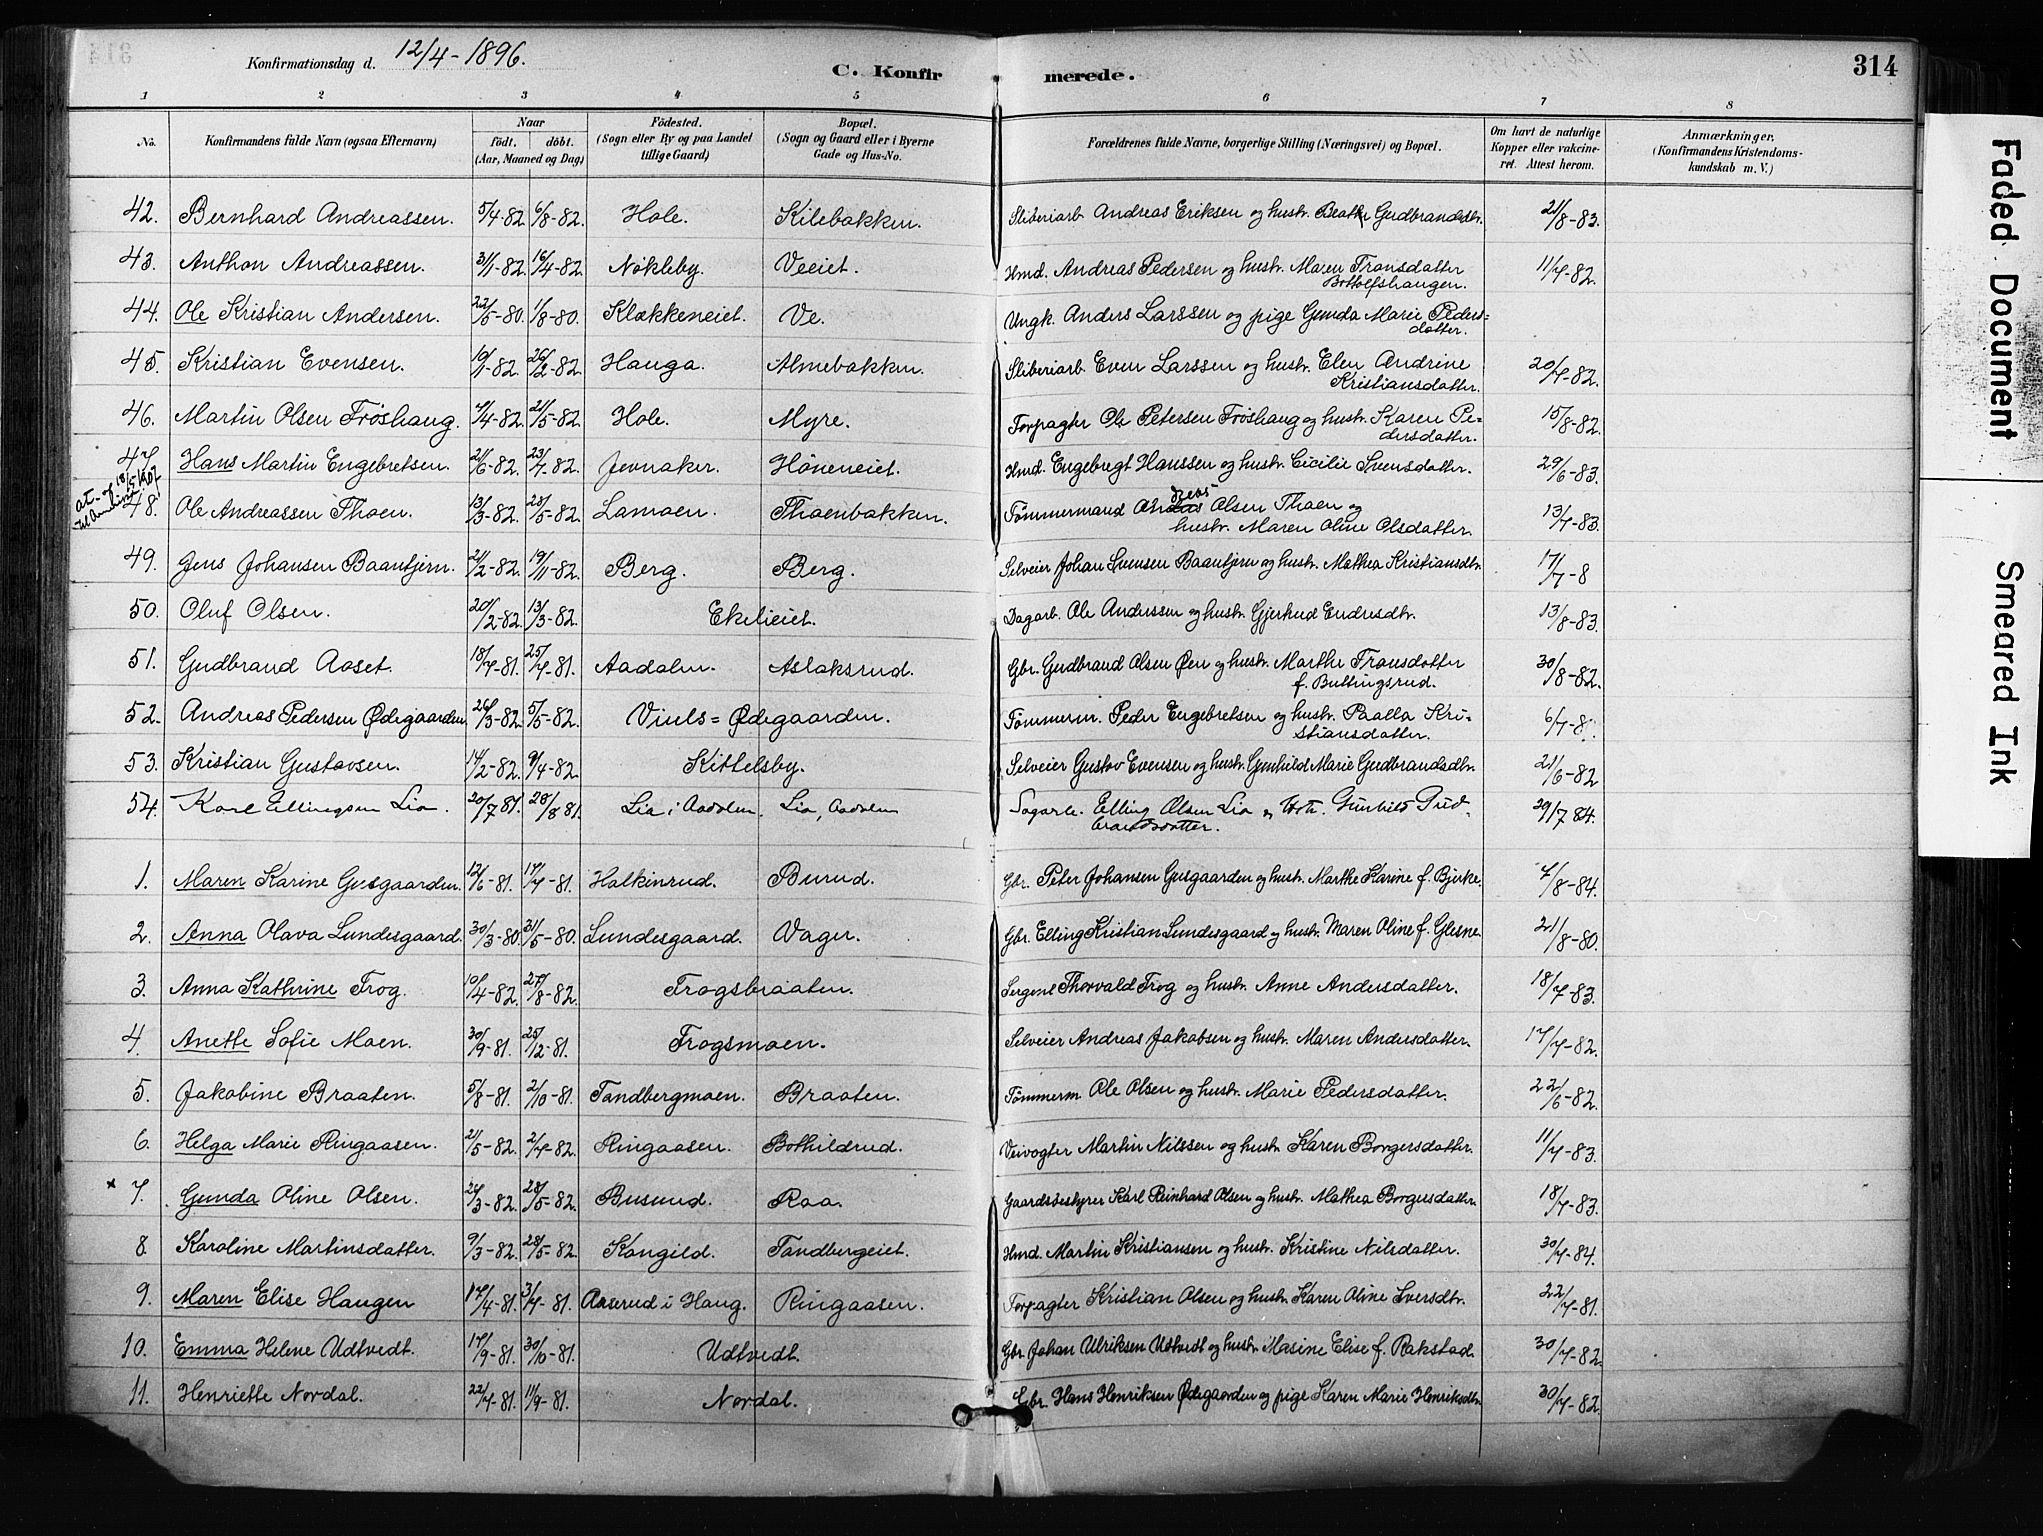 Konfirmationsdag d. 12/4-1896.
C. Konfirmerede.
314
1 2 3 4 5 6 7 8
No. Konfirmandens fulde Navn (ogsaa Efternavn) Naar født. døbt. (Aar, Maaned og Dag) Fødested. (Sogn eller By og paa Landet tillige Gaard) Bopæl. (Sogn og Gaard eller i Byerne Gade og Hus-No. Forældrenes fulde Navne, borgerlige Stilling (Næringsvei) og Bopæl. Om havt de naturlige Kopper eller vakcineret. Attest herom. Anmærkninger. (Konfirmandens Kristendomskundskab m. V.)
42. Bernhard Andreassen. 5/4-82 6/8-82. Hole. Kilebakken. Sliberiarb. Andreas Eriksen og hustr. Beathe Gudbrandsdtr. 21/8-83.
43. Anthon Andreassen. 31/1-82. 16/4-82. Nøkleby. Veeiet. Hmd. Andreas Pedersen og hustr. Maren Fransdatter
Bottolfshaugen. 11/7-82.
44. Ole Kristian Andersen. 22/5-80. 1/8-80. Klækkeneiet. Ve. Ungk. Anders Larssen og pige Gunda Marie Peders=
datter.
45. Kristian Evensen. 19/1-82. 26/2-82. Hauga. Almebakken. Sliberiarb. Even Larssen og hustr. Elen Andrine
Kristiansdatter. 20/7-82.
46. Martin Olsen Frøshaug. 7/4-82. 21/5-82. Hole. Myre. Forpagter Ole Petersen Frøshaug og hustr. Karen Pe=
dersdatter. 15/8-82.
47. Hans Martin Engebretsen. 21/6-82. 23/7-82. Jevnaker. Høneneiet. Hmd. Engebregt Hanssen og hustr. Cicilie Svensdatter. 29/6-83.
48. Ole Andreassen Thoen. 13/3-82. 28/5-82. Lamoen. Thoenbakken. Tømmermand Andreas Olsen Thoen og
hustr. Maren Oline Olsdatter. 13/7-83.
49. Jens Johansen Baantjern. 21/2-82. 19/11-82. Berg. Berg. Selveier Johan Svensen Baantjern og hustr. Mathea Kristiansdtr. 17/7-8
50. Oluf Olsen. 20/2-82. 13/3-82. Ekelieiet. Dagarb. Ole Anderssen og hustr. Gjertrud Endresdtr. 13/8-83.
51. Gudbrand Aaset. 18/7-81. 25/7-81. Aadalen. Aslaksrud. Gbr. Gudbrand Olsen Øen og hustr. Marthe Fransdatter
f. Buttingsrud. 30/8-82.
52. Andreas Pedersen Ødegaarden 26/3-82. 5/5-82. Viuls=Ødegaarden. Tømmerm. Peder Engebretsen og hustr. Paalla Kri=
stiansdatter. 6/7-8.
53. Kristian Gustavsen. 14/2-82. 9/4-82. Kittelsby. Selveier Gustav Evensen og hustr. Gunhild Marie Gudbrandsdtr. 21/6-82
54. Karl Ellingsen Lia. 20/7 81. 28/8 81. Lia i Aadalen. Lia, Aadalen Sagarb. Elling Olsen Lia og Hstr. Gunhild Gud-
brandsdatter. 29/7 84.
1. Maren Karine Gusgaarden. 12/6-81. 17/7-81. Halkinrud. Burud. Gbr. Peter Johansen Gusgaarden og hustr. Marthe Karine f. Bjerke. 7/8-84.
2. Anna Olava Lundesgaard. 30/3-80. 31/5-80. Lundesgaard. Vager. Gbr. Elling Kristian Lundesgaard og hustr. Maren Oline f. Glesne. 21/8-80.
3. Anna Kathrine Frog. 10/4-82. 27/8-82. Frogsbraaten. Sergent Thorvald Frog og hustr. Anne Andersdatter. 18/7-83.
4. Anette Sofie Moen. 30/9-81. 25/12-81. Frogsmoen. Selveier Andreas Jakobsen og hustr. Maren Andersdatter. 17/7-82.
5. Jakobine Braaten. 5/8-81. 2/10-81. Tandbergmoen. Braaten. Tømmerm. Ole Olsen og hustr. Marie Pedersdatter. 22/6-82.
6. Helga Marie Ringaasen. 21/5-82. 2/7-82. Ringaasen. Bothildrud. Veivogter Martin Nilssen og hustr. Karen Borgersdatter. 11/7-83.
x 7. Gunda Oline Olsen. 24/3-82. 28/5-82. Busund. Raa. Gaardsbestyrer Karl Reinhard Olsen og hustr. Mathea Borgersdatter. 18/7-83.
8. Karoline Martinsdatter. 9/3-82. 28/5-82. Kongild. Tandbergeiet. Hmd. Martin Kristiansen og hustr. Kristine Nilsdatter. 30/7-84.
9. Maren Elise Haugen 17/4-81. 3/7-81. Aaserud i Haug. Ringaasen. Forpagter Kristian Olsen og hustr. Karen Oline Iversdtr. 22/7-81.
10. Emma Helene Udtvedt. 17/9-81. 30/10-81. Udtvedt. Gbr. Johan Ulriksen Udtvedt og hustr. Masine Elise f. Rakstad. 30/7-82.
11. Henriette Nordal. 22/7-81. 11/9-81. Nordal. Gbr. Hans Henriksen Ødegaarden og pige Karen Marie Henriksdtr. 30/7-82.
Faded Document
Smeared Ink